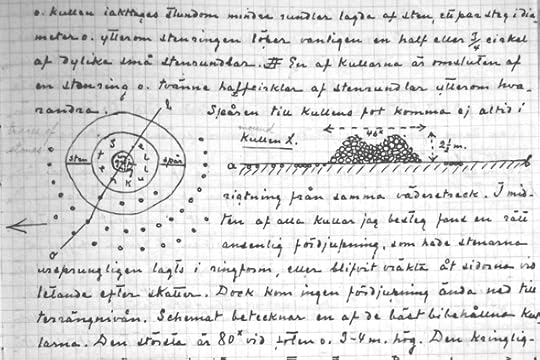 o. kullen iakttages stundom mindre rundlar lagda af sten ett par steg i dia-
meter o. ytterom stenringen löper vanligen en half eller 3/4 cirkel
af dylika små stenrundlar. En af kullarna är omsluten af
en stenring o. tvänne halfcirklar af stenrundlar ytterom hva-
randra. Spåren till kullens fot komma ej altid i
mound
Kullen X.
46ˣ
2½ m.
a b
sten spår
b
a
riktning från samma väderstreck. I mid-
ten af alla kullar jag besteg fans en rätt
ansenlig fördjupning, som hade stenarna
ursprungligen lagts i ringform, eller blifvit vräkta åt sidorna vid
letande efter skatter. Dock kom ingen fördjupning ända ned till
terrängnivån. Schemat betecknar en af de bäst bibehållna kul-
larna. Den största är 80ˣ vid foten o. 3-4 m. hög. Den kringlig-